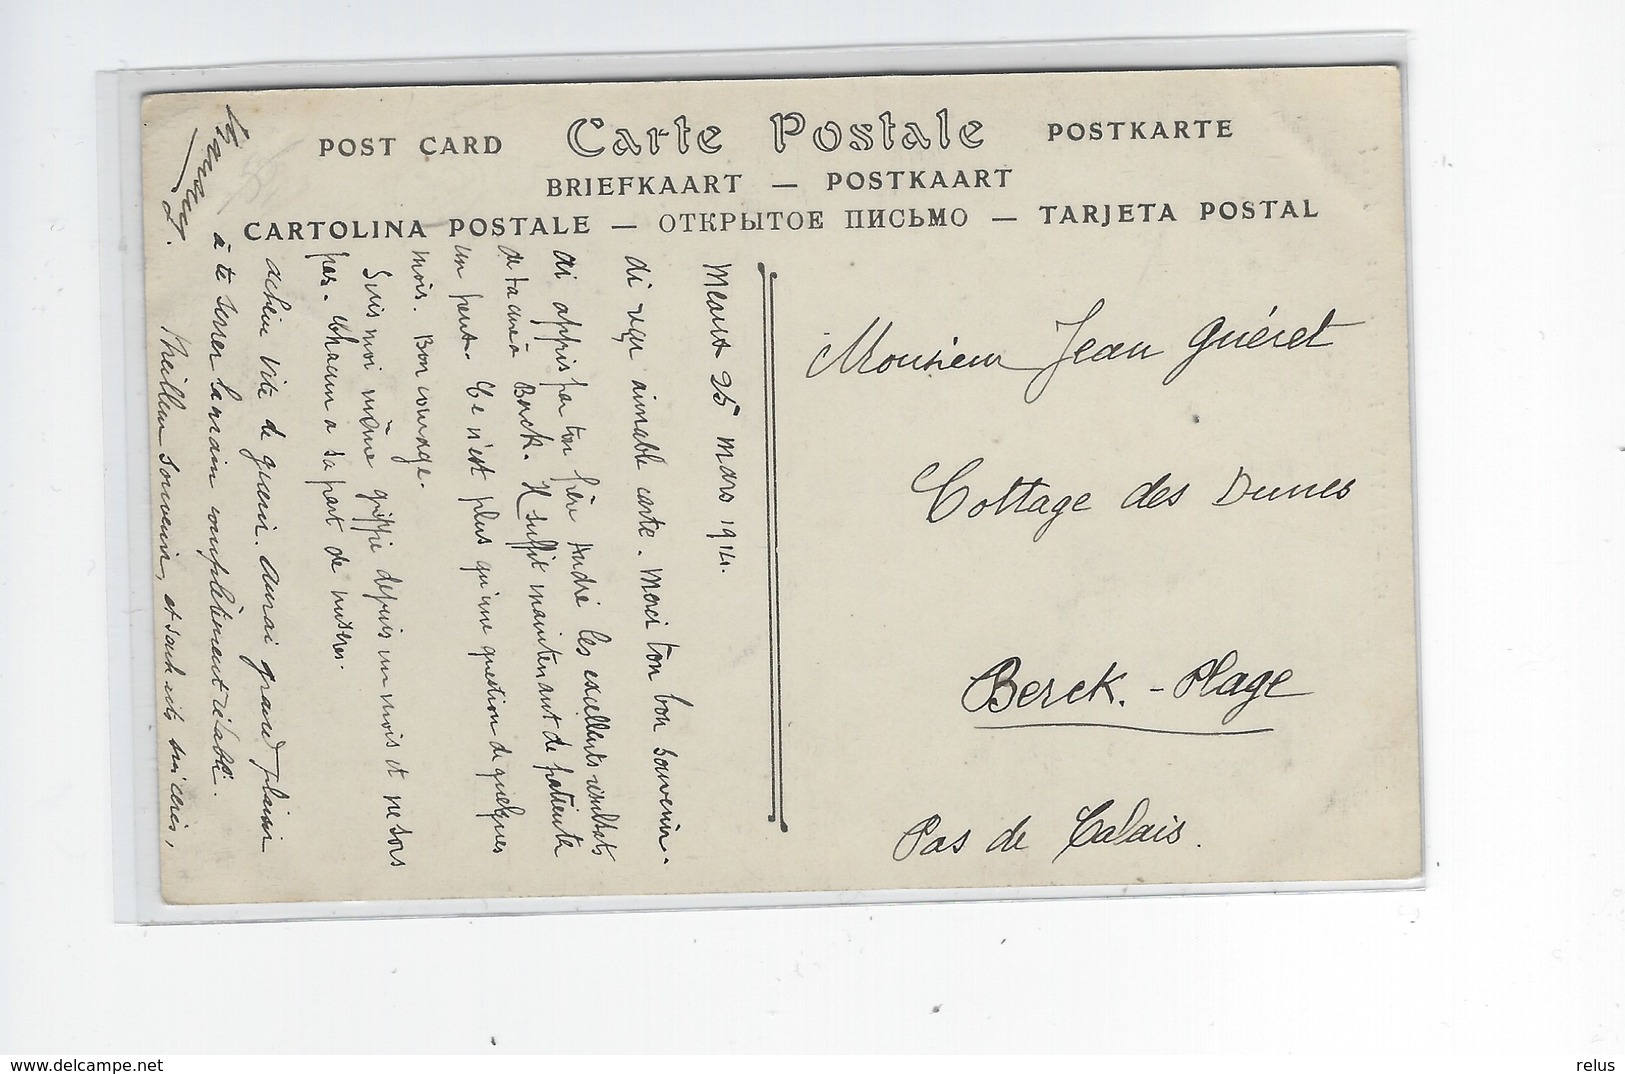 POST CARD Carte Postale POSTKARTE
BRIEFKAART — POSTKAART
CARTOLINA POSTALE — ОТКРЫТОЕ ПИСЬМО — TARJETA POSTAL
25 mars 1914.
ai reçu aimable carte. Merci ton bon souvenir.
ai appris par ton frère André les excellents résultats
de ta cure à Berck. Il suffit maintenant de patienter
un peu. Ce n'est plus qu'une question de quelques
mois. Bon courage.
Suis moi même grippé depuis un mois et ne sors
pas. Chacun a sa part de misères.
achève vite de guérir. Aurai grand plaisir
à te serrer la main complètement rétabli.
Meilleur souvenir, et souhaits sincères,
Monsieur Jean Guéret
Cottage des Dunes
Berck-Plage
Pas de Calais.
relus